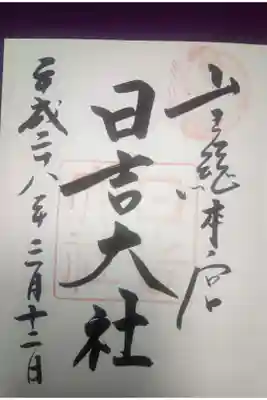 山王総本宮
日吉大社
平成二十八年二月十二日